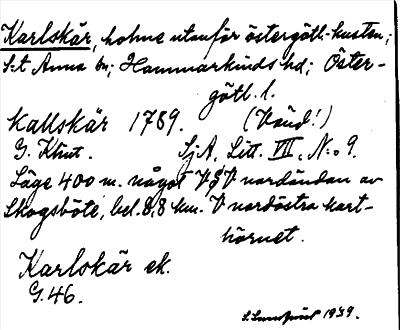 Karlskär, holme utanför östergötl.-kusten;
S:t Anna sn; Hammarkinds hd; Öster-
götl. l.
Kallskär 1789. (Vänd!)
G. Klint. SjA, Litt. VII, N:o 9.
Läge 400 m. något VSV nordändan av
Skogsböte, bel. 8,8 km. V nordöstra kart-
hörnet.
Karlskär ek.
G. 46.
1939.